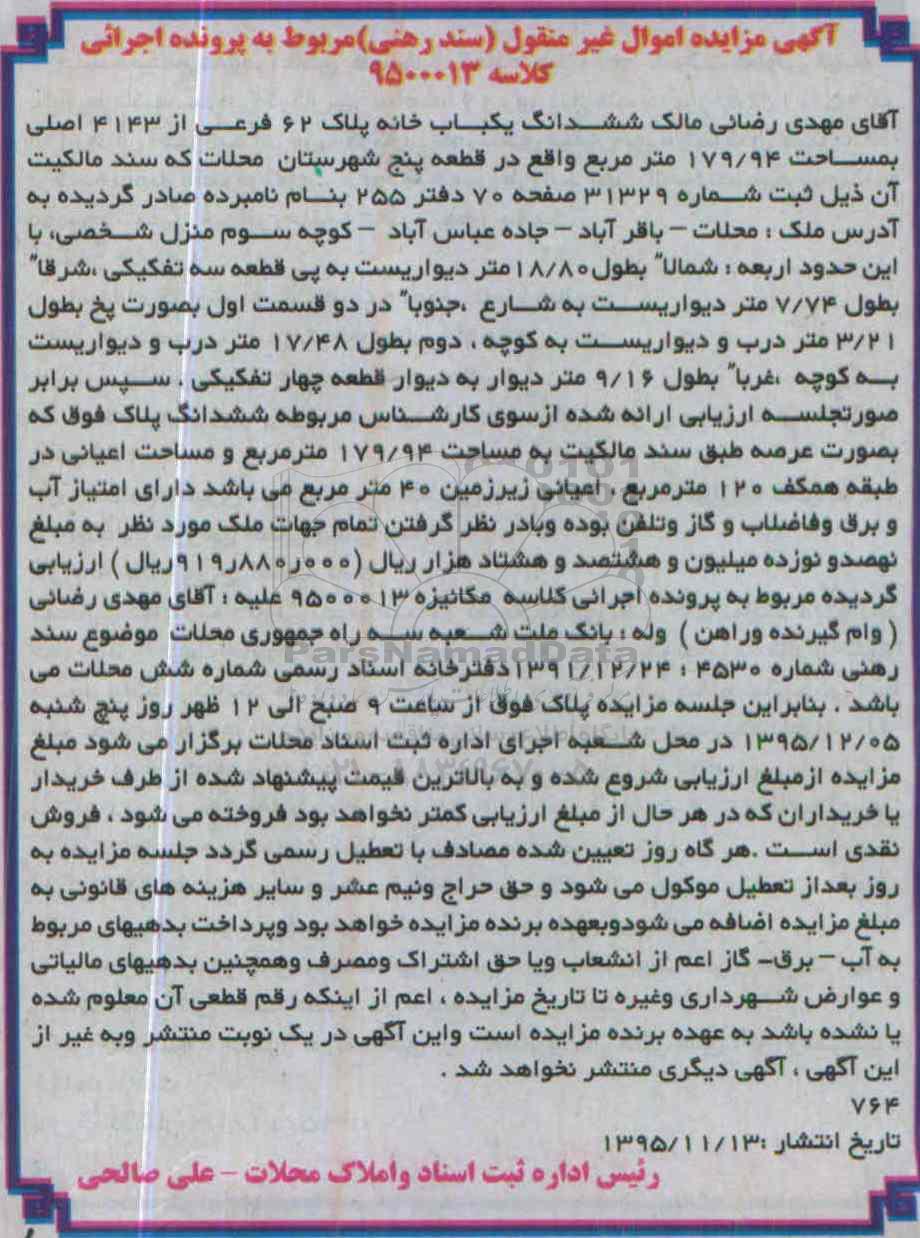 آگهی مزایده اموال غیر منقول (سند رهنی)مربوط به پرونده اجرائی
کلاسه ۹۵۰۰۰۱۳
آقای مهدی رضائی مالک ششدانگ یکباب خانه پلاک ۶۲ فرعی از ۴۱۴۳ اصلی
بمساحت ۱۷۹/۹۴ متر مربع واقع در قطعه پنج شهرستان محلات که سند مالکیت
آن ذیل ثبت شماره ۳۱۳۲۹ صفحه ۷۰ دفتر ۲۵۵ بنام نامبرده صادر گردیده به
آدرس ملک : محلات – باقر آباد – جاده عباس آباد – کوچه سوم منزل شخصی، با
این حدود اربعه : شمالا" بطول ۱۸/۸۰متر دیواریست به پی قطعه سه تفکیکی ،شرقا"
بطول ۷/۷۴ متر دیواریست به شارع ،جنوبا" در دو قسمت اول بصورت پخ بطول
۳/۲۱ متر درب و دیواریست به کوچه ، دوم بطول ۱۷/۴۸ متر درب و دیواریست
به کوچه ،غربا" بطول ۹/۱۶ متر دیوار به دیوار قطعه چهار تفکیکی . سپس برابر
صورتجلسه ارزیابی ارائه شده ازسوی کارشناس مربوطه ششدانگ پلاک فوق که
بصورت عرصه طبق سند مالکیت به مساحت ۱۷۹/۹۴ مترمربع و مساحت اعیانی در
طبقه همکف ۱۲۰ مترمربع ، اعیانی زیرزمین ۴۰ متر مربع می باشد دارای امتیاز آب
و برق وفاضلاب و گاز وتلفن بوده وبادر نظر گرفتن تمام جهات ملک مورد نظر به مبلغ
نهصدو نوزده میلیون و هشتصد و هشتاد هزار ریال (۹۱۹ر۸۸۰ر۰۰۰ریال ) ارزیابی
گردیده مربوط به پرونده اجرائی کلاسه مکانیزه ۹۵۰۰۰۱۳ علیه : آقای مهدی رضائی
( وام گیرنده وراهن ) وله : بانک ملت شعبه سه راه جمهوری محلات موضوع سند
رهنی شماره ۴۵۳۰ : ۱۳۹۱/۱۲/۲۴دفترخانه اسناد رسمی شماره شش محلات می
باشد . بنابراین جلسه مزایده پلاک فوق از ساعت ۹ صبح الی ۱۲ ظهر روز پنج شنبه
۱۳۹۵/۱۲/۰۵ در محل شعبه اجرای اداره ثبت اسناد محلات برگزار می شود مبلغ
مزایده ازمبلغ ارزیابی شروع شده و به بالاترین قیمت پیشنهاد شده از طرف خریدار
یا خریداران که در هر حال از مبلغ ارزیابی کمتر نخواهد بود فروخته می شود ، فروش
نقدی است .هر گاه روز تعیین شده مصادف با تعطیل رسمی گردد جلسه مزایده به
روز بعداز تعطیل موکول می شود و حق حراج ونیم عشر و سایر هزینه های قانونی به
مبلغ مزایده اضافه می شودوبعهده برنده مزایده خواهد بود وپرداخت بدهیهای مربوط
به آب – برق- گاز اعم از انشعاب ویا حق اشتراک ومصرف وهمچنین بدهیهای مالیاتی
و عوارض شهرداری وغیره تا تاریخ مزایده ، اعم از اینکه رقم قطعی آن معلوم شده
یا نشده باشد به عهده برنده مزایده است واین آگهی در یک نوبت منتشر وبه غیر از
این آگهی ، آگهی دیگری منتشر نخواهد شد .
۷۶۴
تاریخ انتشار :۱۳۹۵/۱۱/۱۳
رئیس اداره ثبت اسناد واملاک محلات – علی صالحی
ParsNamadData